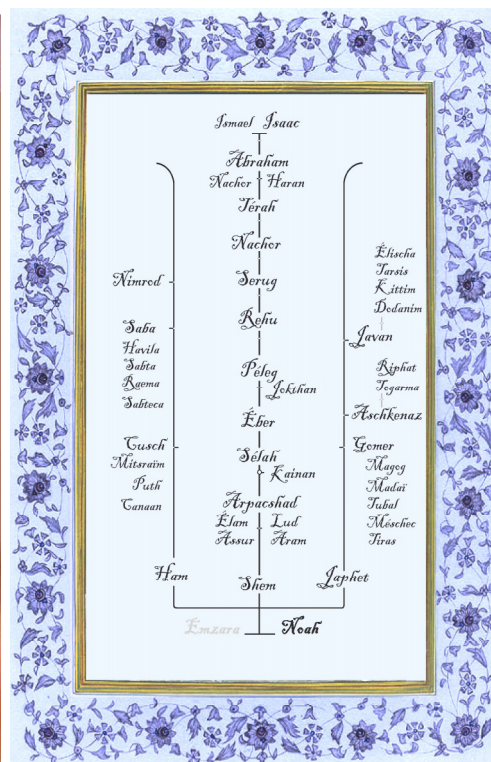 Ismael Isaac
Abraham
Nachor Haran
Térah
Nachor
Serug
Rehu
Péleg
Jokthan
Éber
Sélah
Kainan
Arpacshad
Élam Lud
Assur Aram
Shem
Nimrod
Saba
Havila
Sabta
Raema
Sabteca
Cusch
Mitsraïm
Puth
Canaan
Ham
Élischa
Tarsis
Kittim
Dodanim
Javan
Riphat
Togarma
Aschkenaz
Gomer
Magog
Madaï
Tubal
Méschec
Tiras
Japhet
Emzara Noah